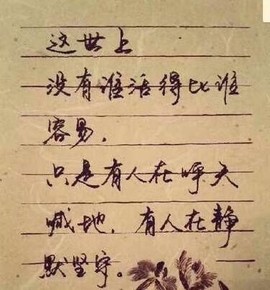 这世上
没有谁活得比谁
容易.
只是有人在呼天
喊地,有人在静
默坚守。